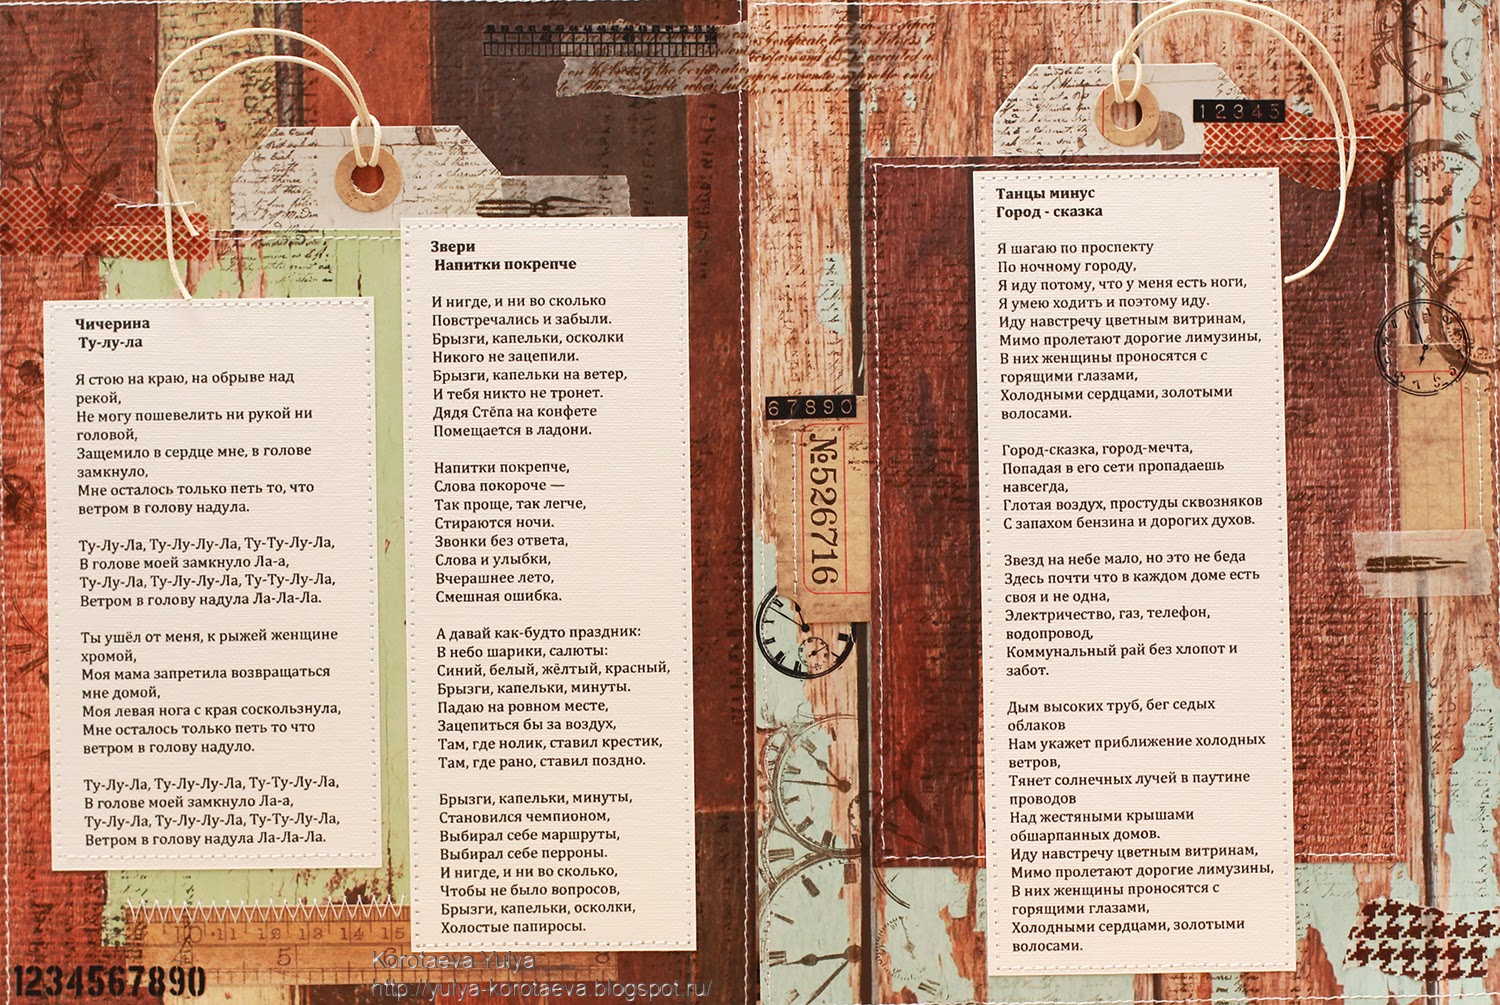 Чичерина
Ту-лу-ла
Я стою на краю, на обрыве над
рекой,
Не могу пошевелить ни рукой ни
головой,
Защемило в сердце мне, в голове
замкнуло,
Мне осталось только петь то, что
ветром в голову надула.
Ту-Лу-Ла, Ту-Лу-Лу-Ла, Ту-Ту-Лу-Ла,
В голове моей замкнуло Ла-а,
Ту-Лу-Ла, Ту-Лу-Лу-Ла, Ту-Ту-Лу-Ла,
Ветром в голову надула Ла-Ла-Ла.
Ты ушёл от меня, к рыжей женщине
хромой,
Моя мама запретила возвращаться
мне домой,
Моя левая нога с края соскользнула,
Мне осталось только петь то что
ветром в голову надуло.
Ту-Лу-Ла, Ту-Лу-Лу-Ла, Ту-Ту-Лу-Ла,
В голове моей замкнуло Ла-а,
Ту-Лу-Ла, Ту-Лу-Лу-Ла, Ту-Ту-Лу-Ла,
Ветром в голову надула Ла-Ла-Ла.
Звери
Напитки покрепче
И нигде, и ни во сколько
Повстречались и забыли.
Брызги, капельки, осколки
Никого не зацепили.
Брызги, капельки на ветер,
И тебя никто не тронет.
Дядя Стёпа на конфете
Помещается в ладони.
Напитки покрепче,
Слова покороче —
Так проще, так легче,
Стираются ночи.
Звонки без ответа,
Слова и улыбки,
Вчерашнее лето,
Смешная ошибка.
А давай как-будто праздник:
В небо шарики, салюты:
Синий, белый, жёлтый, красный,
Брызги, капельки, минуты.
Падаю на ровном месте,
Зацепиться бы за воздух,
Там, где нолик, ставил крестик,
Там, где рано, ставил поздно.
Брызги, капельки, минуты,
Становился чемпионом,
Выбирал себе маршруты,
Выбирал себе перроны.
И нигде, и ни во сколько,
Чтобы не было вопросов,
Брызги, капельки, осколки,
Холостые папиросы.
Танцы минус
Город - сказка
Я шагаю по проспекту
По ночному городу,
Я иду потому, что у меня есть ноги,
Я умею ходить и поэтому иду.
Иду навстречу цветным витринам,
Мимо пролетают дорогие лимузины,
В них женщины проносятся с
горящими глазами,
Холодными сердцами, золотыми
волосами.
Город-сказка, город-мечта,
Попадая в его сети пропадаешь
навсегда,
Глотая воздух, простуды сквозняков
С запахом бензина и дорогих духов.
Звезд на небе мало, но это не беда
Здесь почти что в каждом доме есть
своя и не одна,
Электричество, газ, телефон,
водопровод,
Коммунальный рай без хлопот и
забот.
Дым высоких труб, бег седых
облаков
Нам укажет приближение холодных
ветров,
Тянет солнечных лучей в паутине
проводов
Над жестяными крышами
обшарпанных домов.
Иду навстречу цветным витринам,
Мимо пролетают дорогие лимузины,
В них женщины проносятся с
горящими глазами,
Холодными сердцами, золотыми
волосами.
12345
67890
№526716
10 11 12 13 14 15
5
1234567890
Korotaeva Yulya
http://yulya-korotaeva.blogspot.ru/